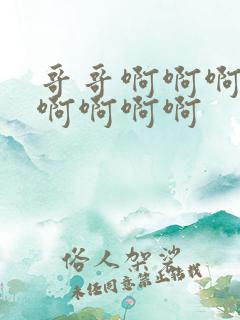 哥哥啊啊啊
啊啊啊啊
俗人架娑
未经同意禁止转载